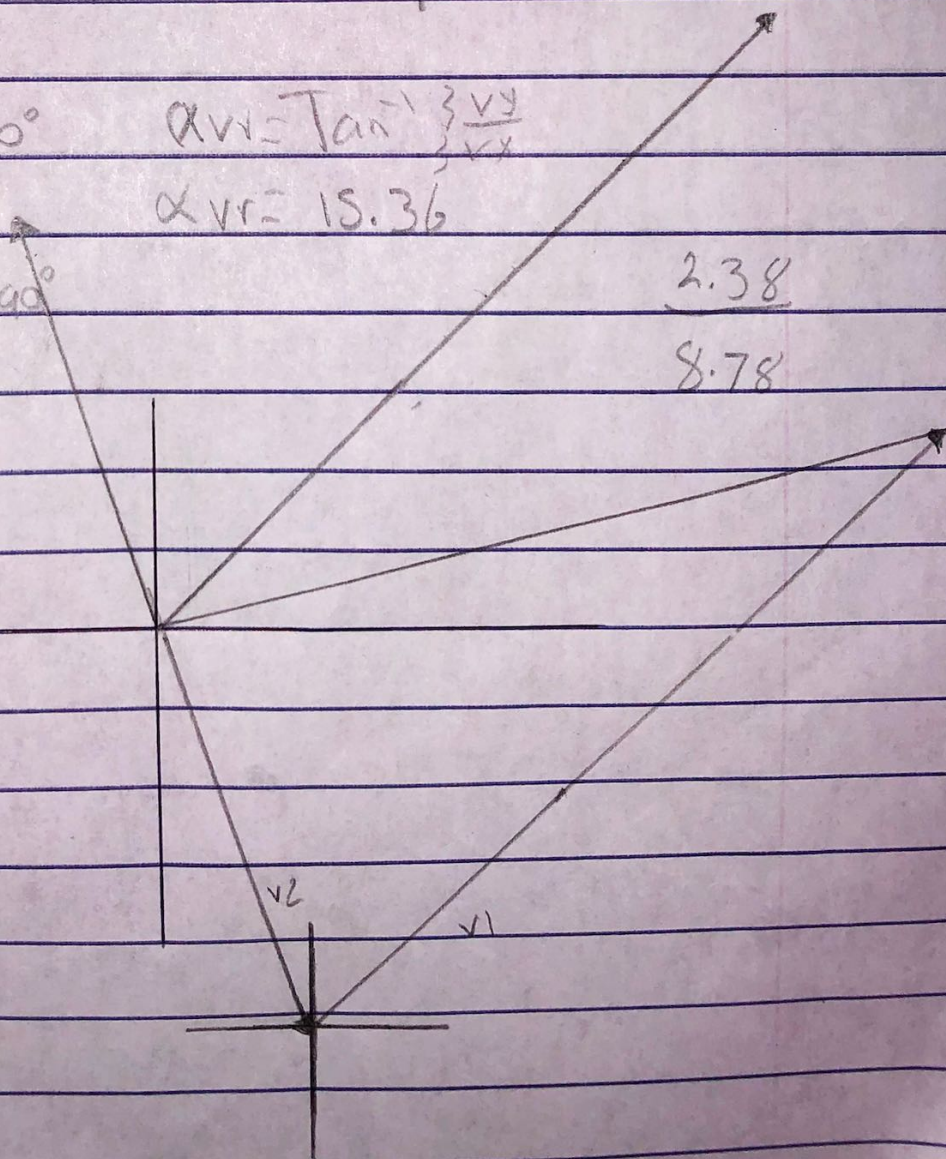 0°
αvr = Tan⁻¹ } vy
} vx
αvr = 15.36
90°
2.38
8.78
v2
v1